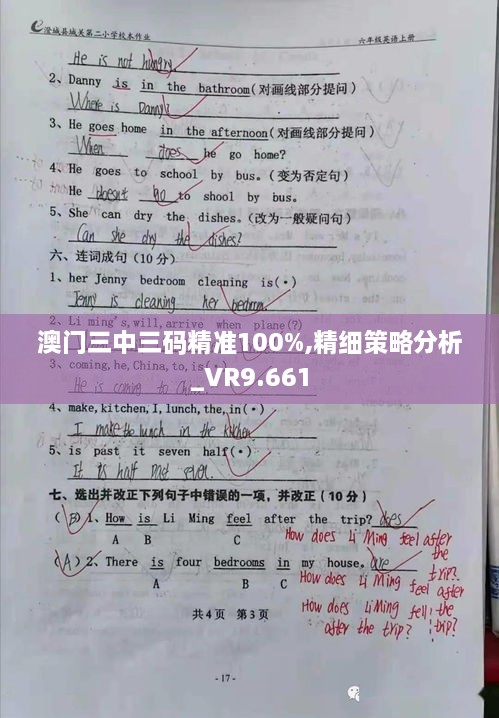 澄城县城关第二小学校本作业 六年级英语上册
He is not hungry.
2、Danny is in the bathroom(对画线部分提问)
Where is Danny?
3、He goes home in the afternoon(对画线部分提问)
When does he go home?
4、He goes to school by bus。(变为否定句)
He doesn't go to shool by bus.
5、She can dry the dishes。(改为一般疑问句)
Can she dry the dishes?
六、连词成句(10分)
1、her Jenny bedroom cleaning is(·)
Jenny is cleaning her bedroom.
2、Li ming's,will,arrive when plane(?)
澳门三中三码精准100%,精细策略分析
_VR9.661
3、coming,he,China,to,is(·)
4、make,kitchen,I,lunch,the,in(·)
I make the lunch in the kitchen
5、is past it seven half(·)
It is half past seven.
七、选出并改正下列句子中错误的一项，并改正(10分)
(B)1、How is Li Ming feel after the trip? does
A B C
How does Li Ming feel after the trip?
(A)2、There is four bedrooms in my house。are
A B C
How does Li Ming feel after the trip?
How does Li Ming fell after the trip?
共4页 第3页
-17-